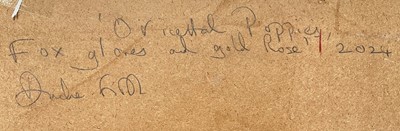 'Oriental Poppies,
Fox gloves and gold Rose' 2024